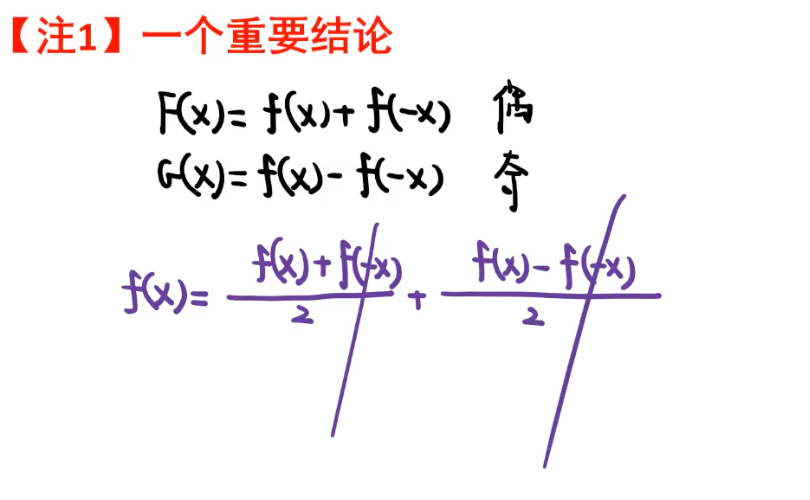 【注1】一个重要结论
F(x)= f(x)+ f(-x) 偶
G(x)= f(x)- f(-x) 奇
f(x)= \frac{f(x)+f(-x)}{2} + \frac{f(x)-f(-x)}{2}